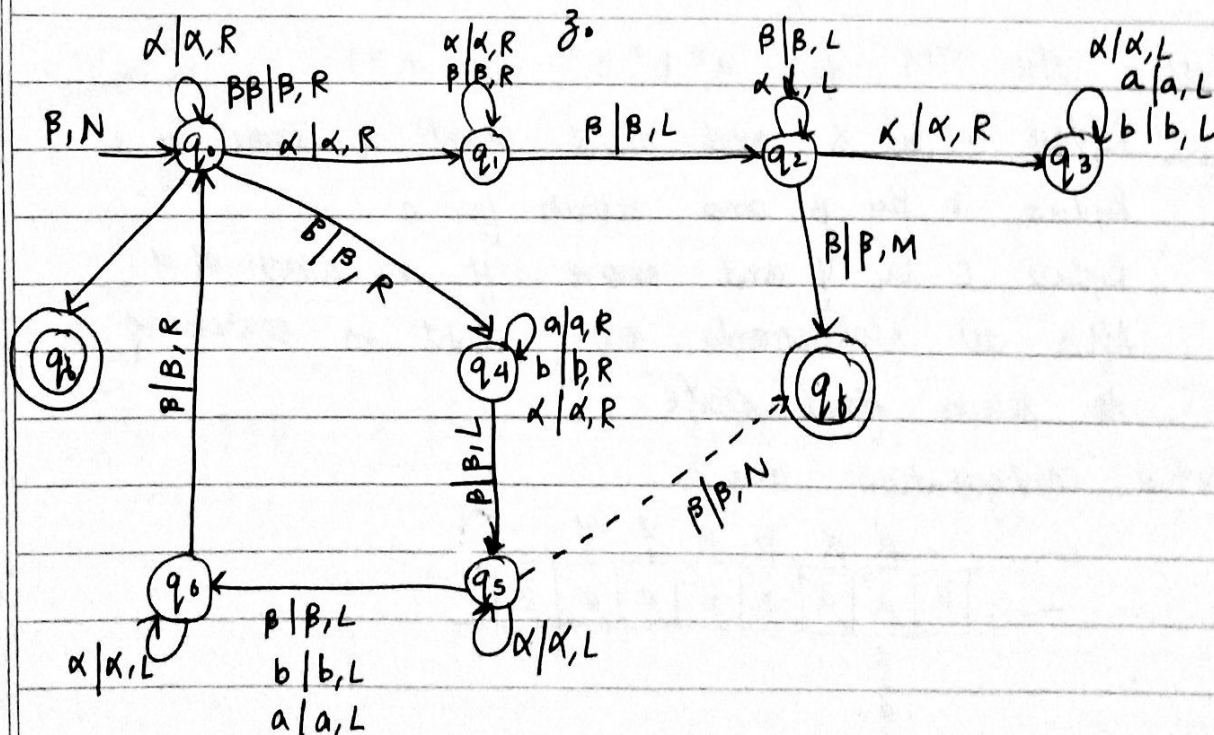 z.
α|α, R
ββ|β, R
β, N
q₀
α|α, R
α|α, R
β|β, R
q₁
β|β, L
β|β, L
q₂
α|α, R
α|α, L
a|a, L
b|b, L
q₃
β|β, M
β|β, R
q₄
a|a, R
b|b, R
α|α, R
β|B, R
β|β, L
β|β, N
q₆
α|α, L
β|β, L
b|b, L
a|a, L
q₅
α|α, L